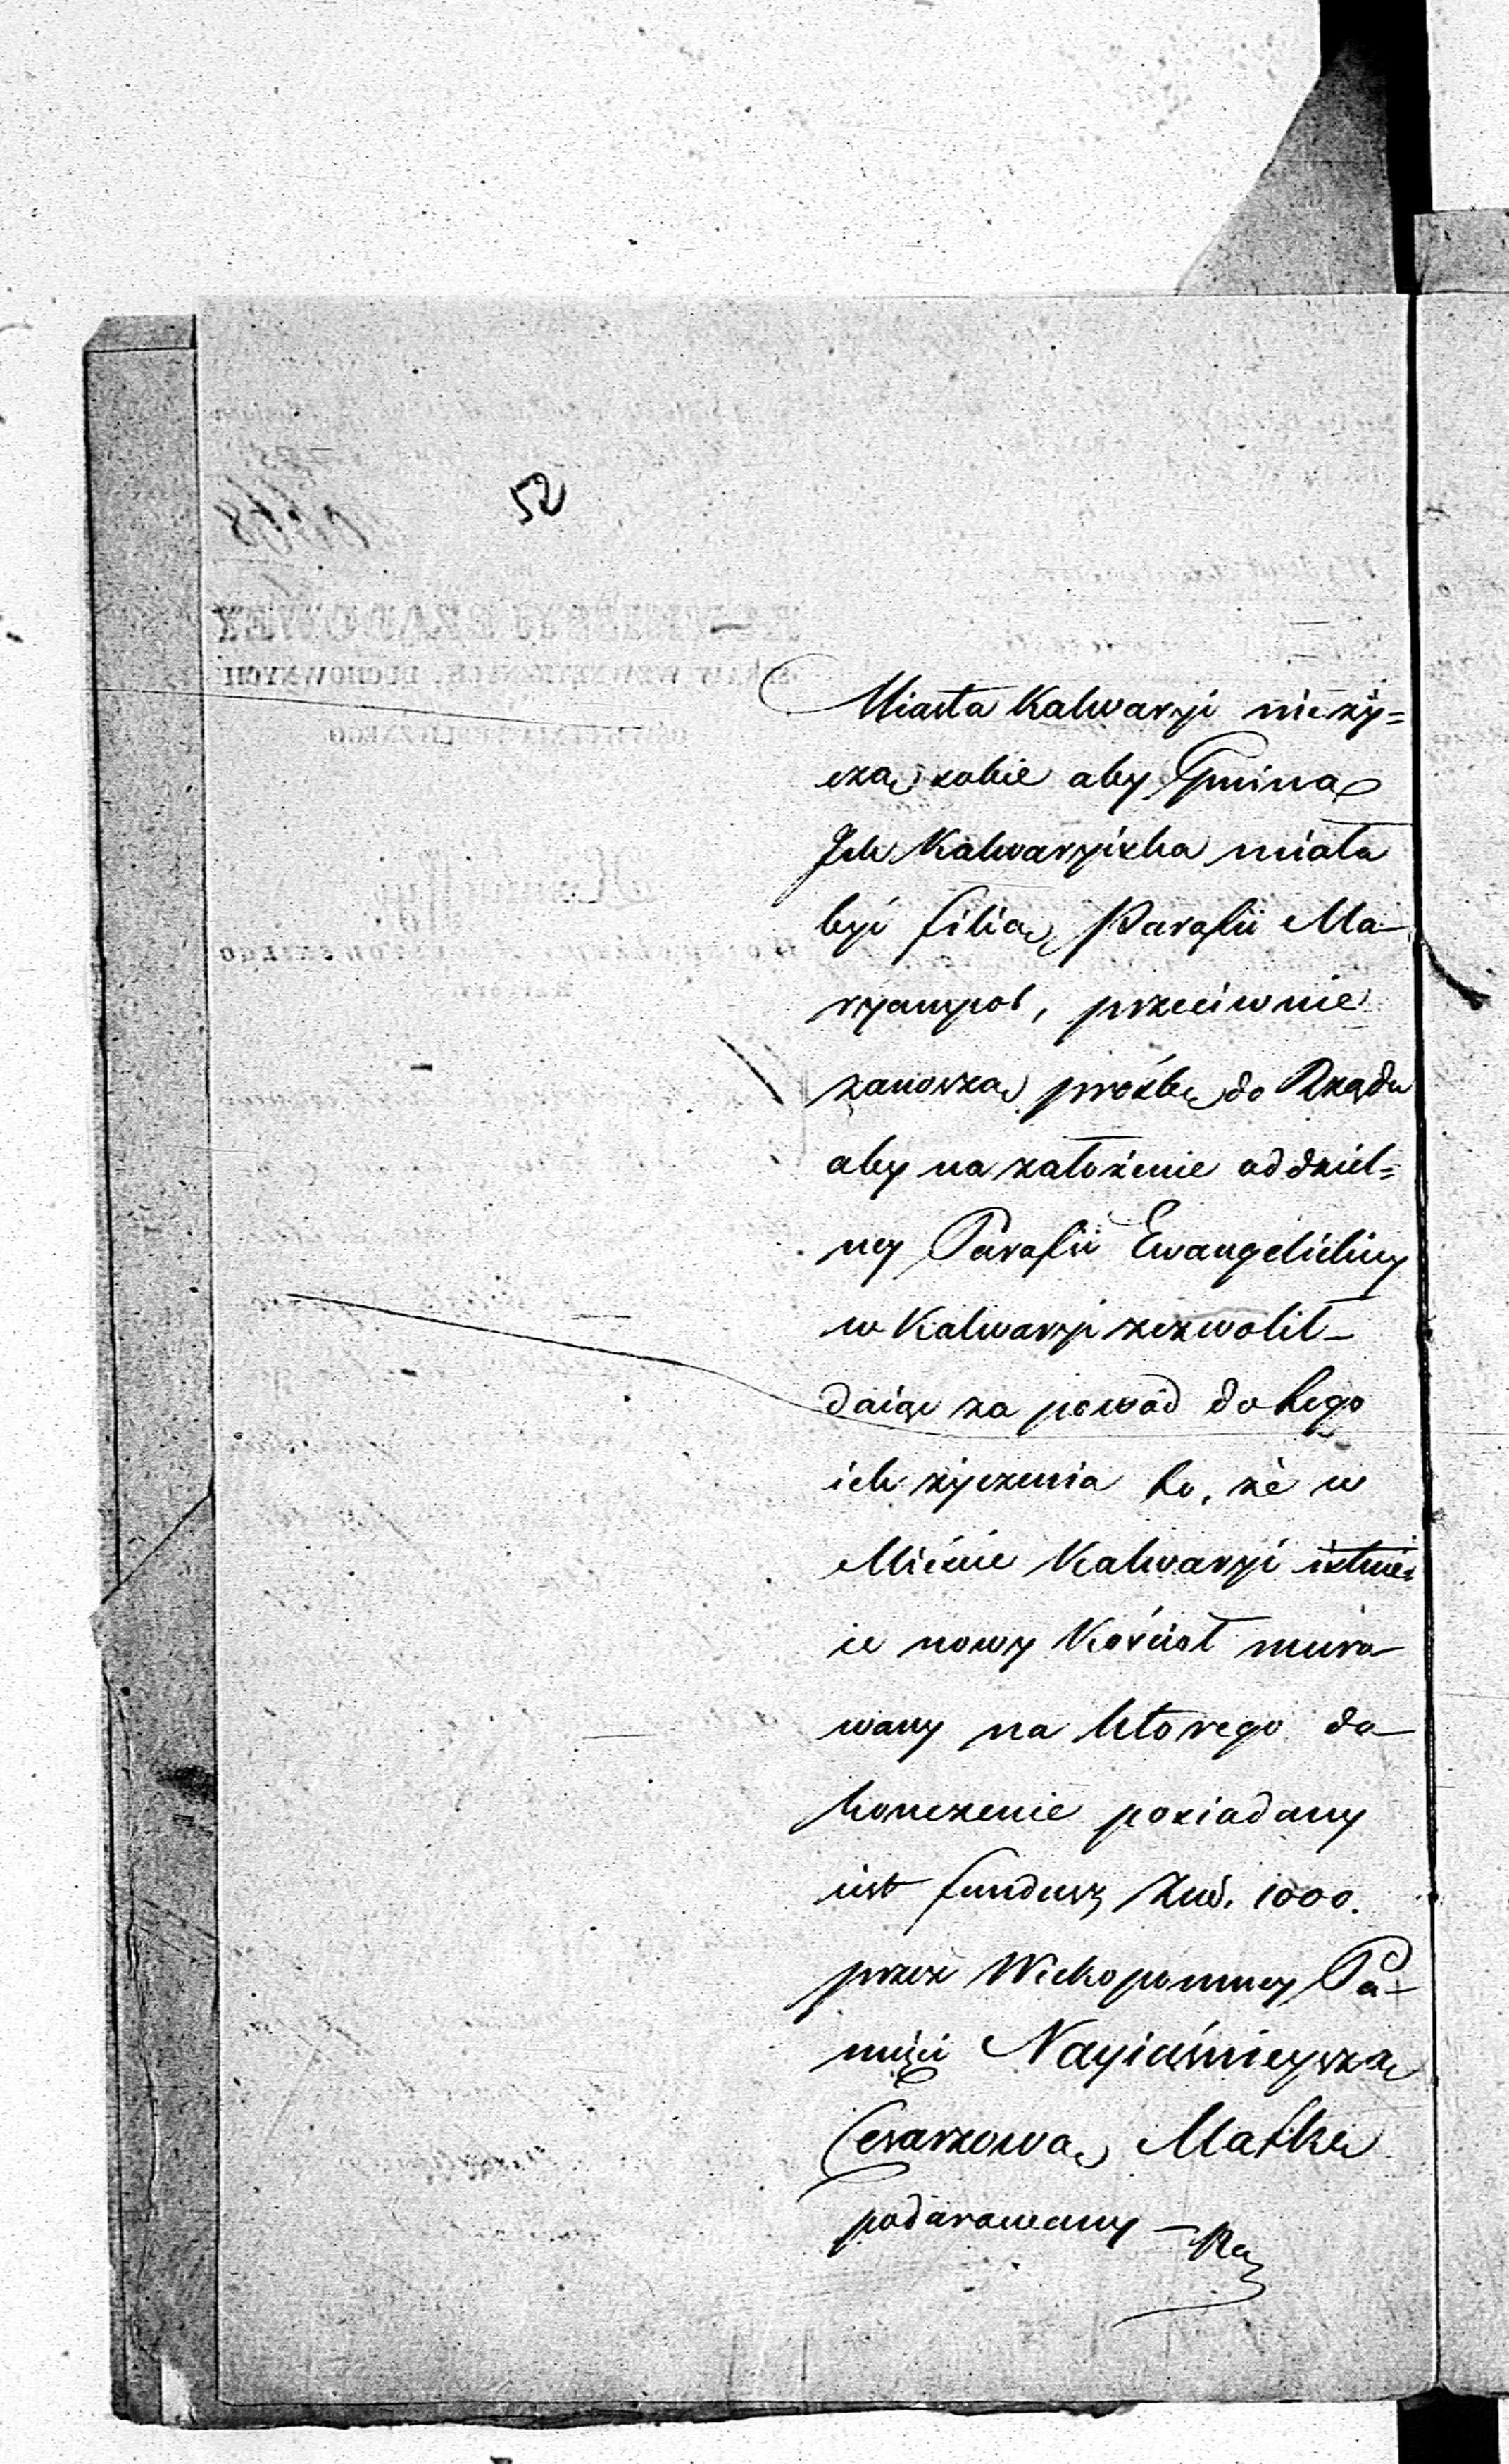 52
Miasta Kalwaryi nieży=
czą sobie aby Gmina
Ich Kalwaryiska miała
być filią Parafii Ma-
ryampol, przeciwnie
zanoszą prośbę do Rządu
aby na założenie oddziel=
ney Parafii Ewangelickiey
w Kalwaryi zezwolił -
daiąc za powód do tego
ich życzenia to, że w
Mieście Kalwaryi istnie=
ie nowy Kościół muro-
wany na którego do-
konczenie posiadany
iest fundusz 1000.
przez Wiekopomney Pa-
mięci Nayiaśnieyszą
Cesarzową Matkę
podarowany -